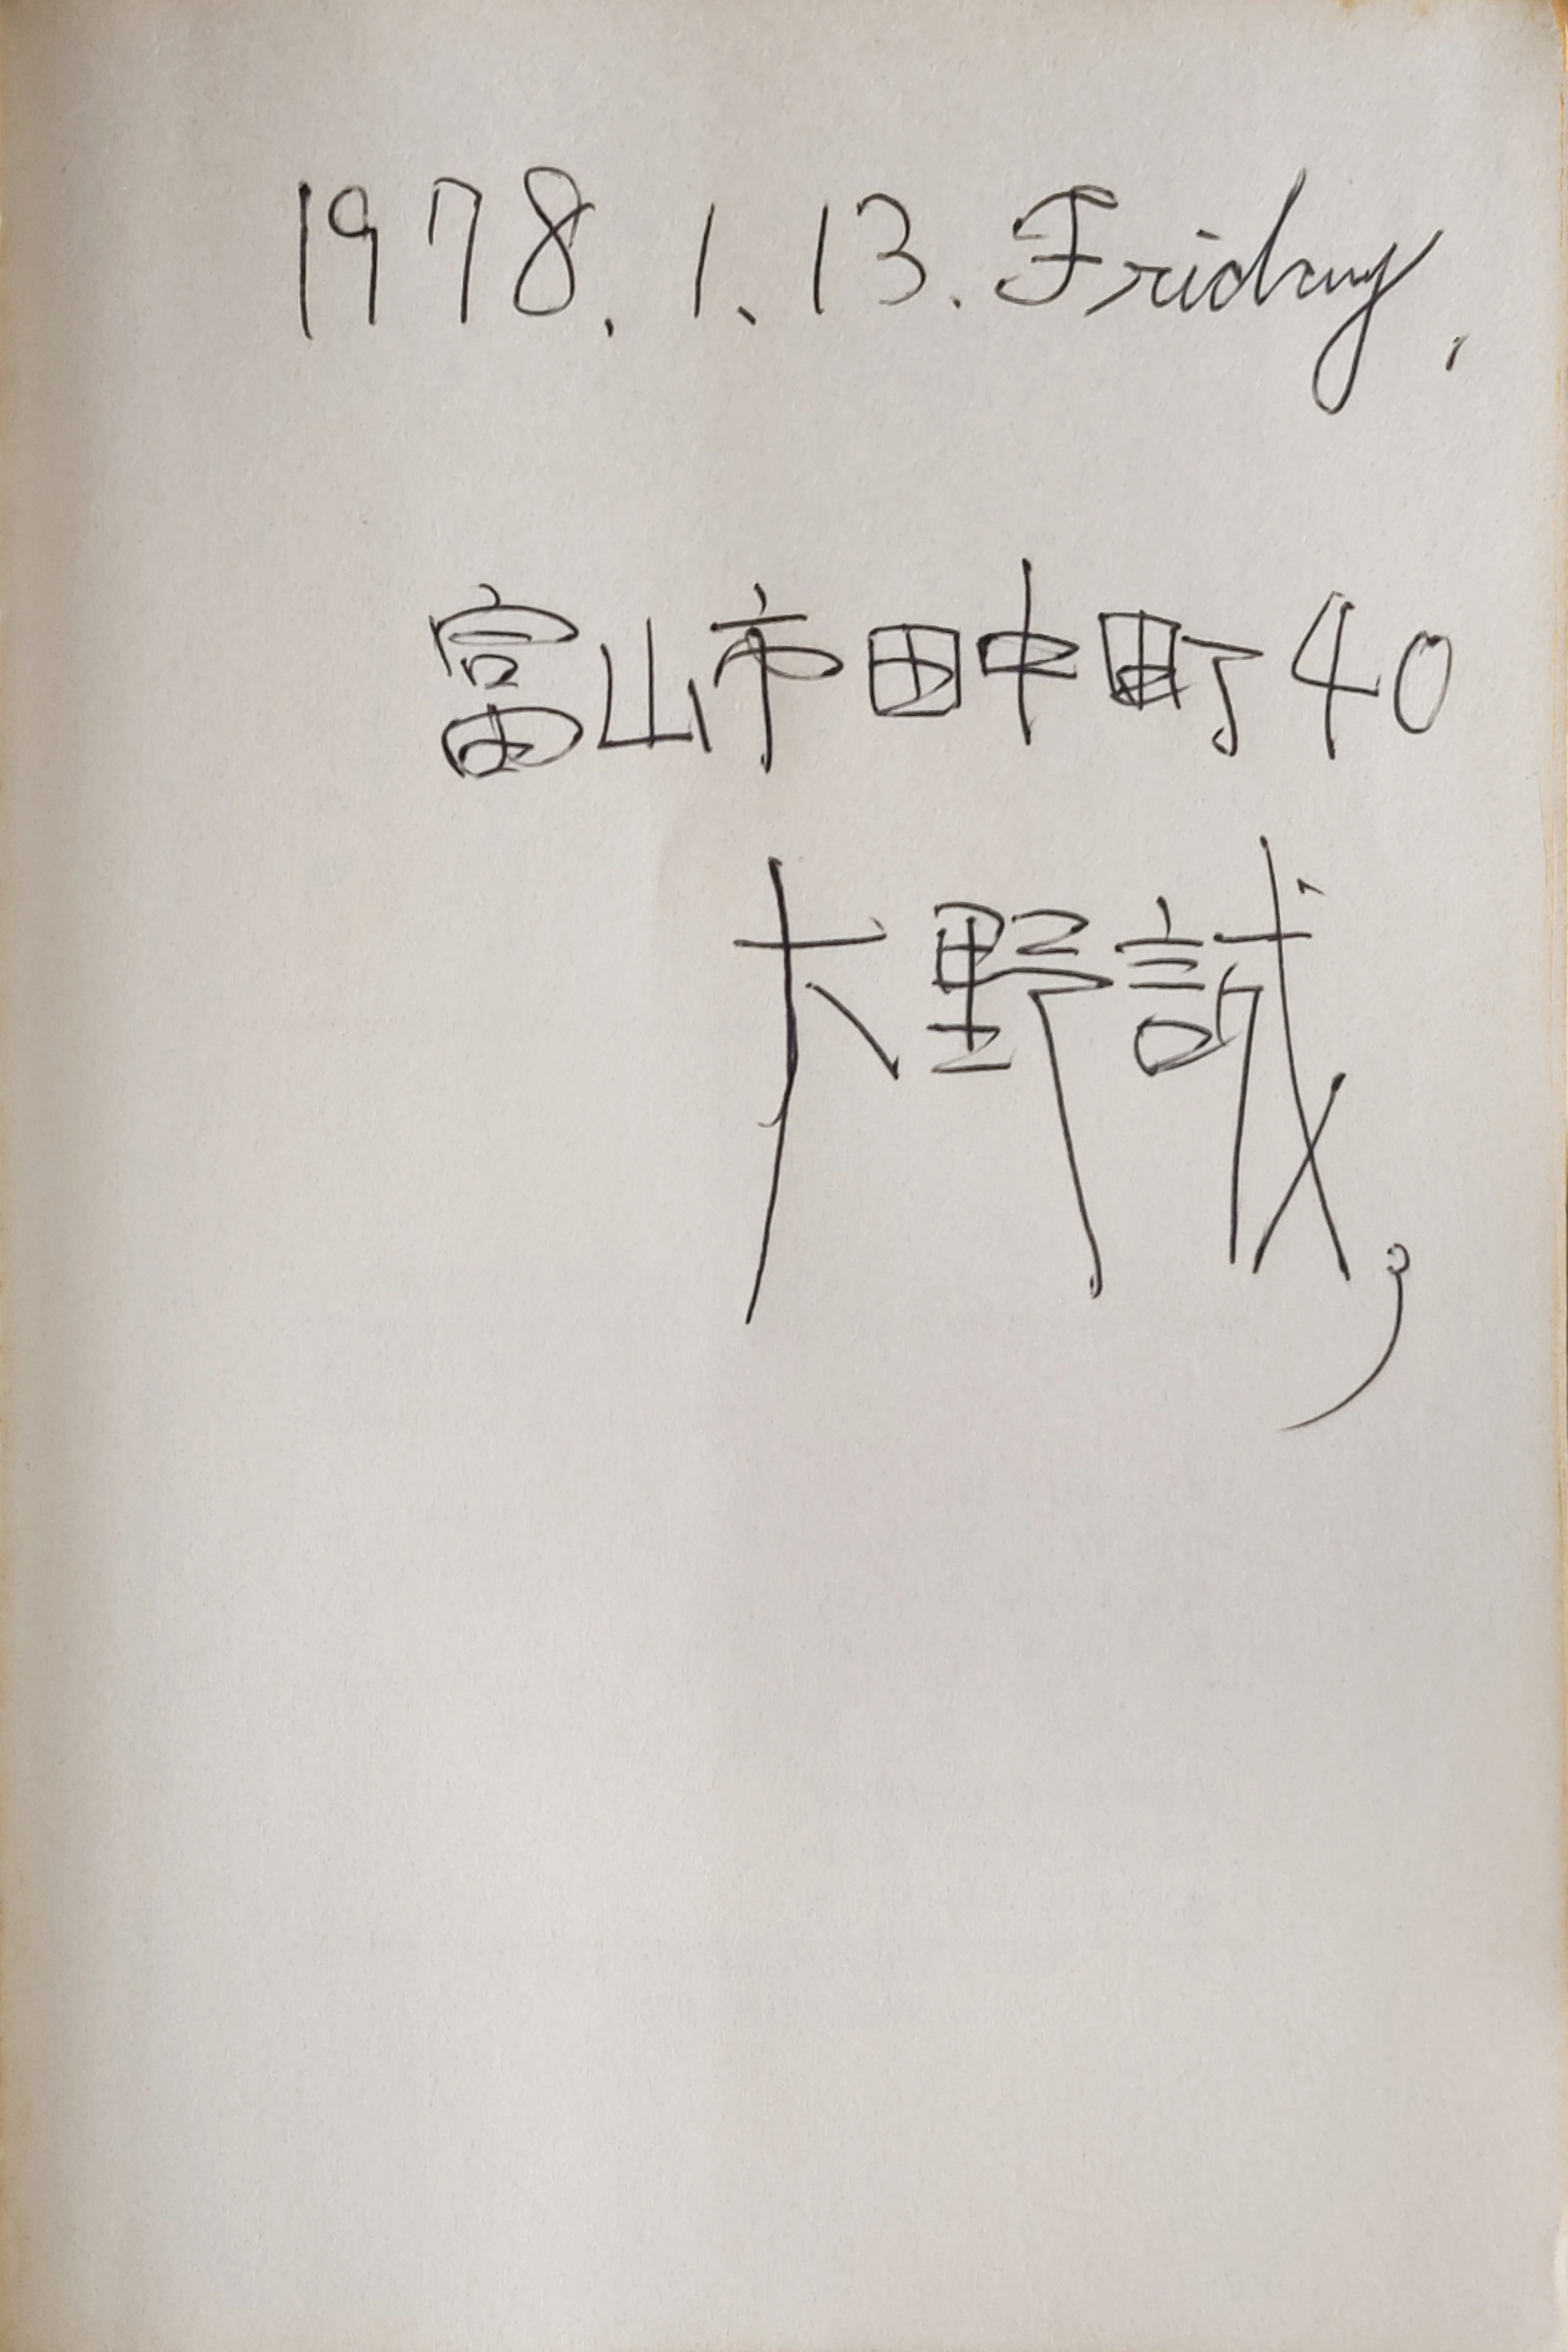 1978. 1. 13. Friday.
富山市田中町40
大野誠